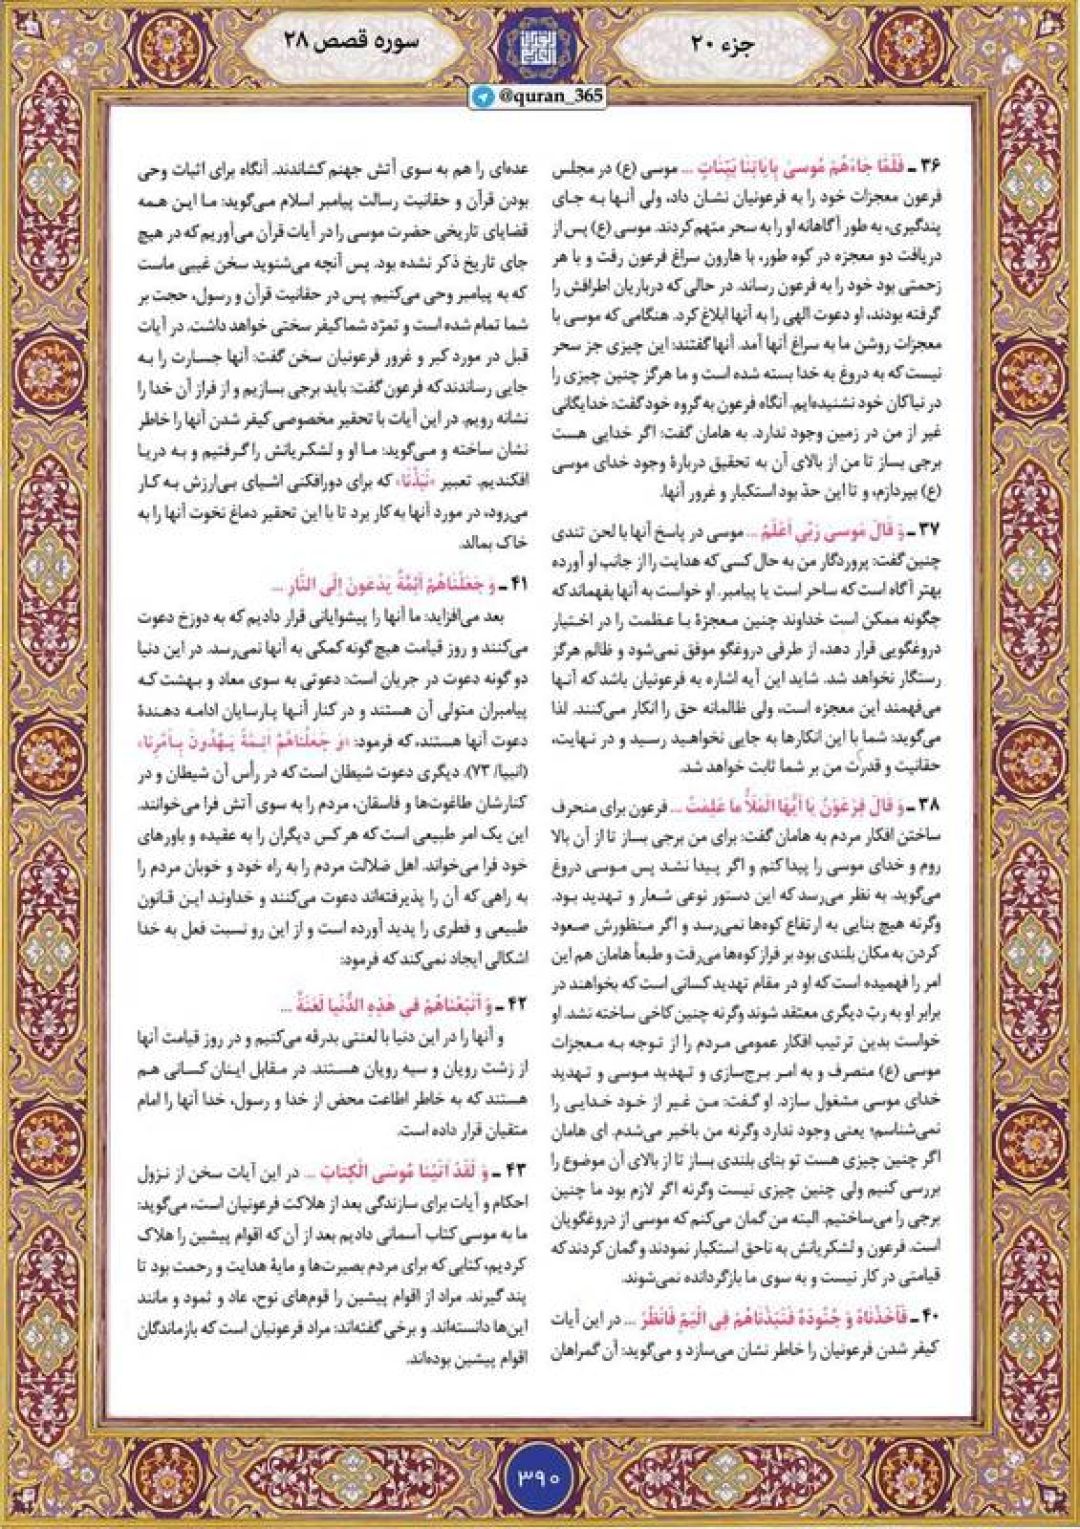 جزء ۲۰
سوره قصص ۲۸
@quran_365
۳۶ ـ فَلَمَّا جاءَهُمْ مُوسىٰ بِآياتِنا بَيِّناتٍ ... موسی (ع) در مجلس
فرعون معجزات خود را به فرعونیان نشان داد، ولی آنها به جای
پندگیری، به طور آگاهانه او را به سحر متهم کردند. موسی (ع) پس از
دریافت دو معجزه در کوه طور، با هارون سراغ فرعون رفت و با هر
زحمتی بود خود را به فرعون رساند. در حالی که درباریان اطرافش را
گرفته بودند، او دعوت الهی را به آنها ابلاغ کرد. هنگامی که موسی با
معجزات روشن ما به سراغ آنها آمد. آنها گفتند: این چیزی جز سحر
نیست که به دروغ به خدا بسته شده است و ما هرگز چنین چیزی را
در نیاکان خود نشنیده‌ایم. آنگاه فرعون به گروه خود گفت: خدایگانی
غیر از من در زمین وجود ندارد. به هامان گفت: اگر خدایی هست
برجی بساز تا من از بالای آن به تحقیق دربارهٔ وجود خدای موسی
(ع) بپردازم، و تا این حدّ بود استکبار و غرور آنها.
۳۷ ـ وَ قالَ مُوسى رَبِّي أَعْلَمُ ... موسی در پاسخ آنها با لحن تندی
چنین گفت: پروردگار من به حال کسی که هدایت را از جانب او آورده
بهتر آگاه است که ساحر است یا پیامبر. او خواست به آنها بفهماند که
چگونه ممکن است خداوند چنین معجزهٔ با عظمت را در اختیار
دروغگویی قرار دهد، از طرفی دروغگو موفق نمی‌شود و ظالم هرگز
رستگار نخواهد شد. شاید این آیه اشاره به فرعونیان باشد که آنها
می‌فهمند این معجزه است، ولی ظالمانه حق را انکار می‌کنند. لذا
می‌گوید: شما با این انکارها به جایی نخواهید رسید و در نهایت،
حقانیت و قدرت من بر شما ثابت خواهد شد.
۳۸ ـ وَ قالَ فِرْعَوْنُ يا أَيُّهَا الْمَلَأُ ما عَلِمْتُ ... فرعون برای منحرف
ساختن افکار مردم به هامان گفت: برای من برجی بساز تا از آن بالا
روم و خدای موسی را پیدا کنم و اگر پیدا نشد پس موسی دروغ
می‌گوید. به نظر می‌رسد که این دستور نوعی شعار و تهدید بود.
وگرنه هیچ بنایی به ارتفاع کوه‌ها نمی‌رسد و اگر منظورش صعود
کردن به مکان بلندی بود بر فراز کوه‌ها می‌رفت و طبعاً هامان هم این
امر را فهمیده است که او در مقام تهدید کسانی است که بخواهند در
برابر او به ربّ دیگری معتقد شوند وگرنه چنین کاخی ساخته نشد. او
خواست بدین ترتیب افکار عمومی مردم را از توجه به معجزات
موسی (ع) منصرف و به امر برج‌سازی و تهدید موسی و تهدید
خدای موسی مشغول سازد. او گفت: من غیر از خود خدایی را
نمی‌شناسم؛ یعنی وجود ندارد وگرنه من باخبر می‌شدم. ای هامان
اگر چنین چیزی هست تو بنای بلندی بساز تا از بالای آن موضوع را
بررسی کنیم ولی چنین چیزی نیست وگرنه اگر لازم بود ما چنین
برجی را می‌ساختیم. البته من گمان می‌کنم که موسی از دروغگویان
است. فرعون و لشکریانش به ناحق استکبار نمودند و گمان کردند که
قیامتی در کار نیست و به سوی ما بازگردانده نمی‌شوند.
۴۰ ـ فَأَخَذْناهُ وَ جُنُودَهُ فَنَبَذْناهُمْ فِي الْيَمِّ فَانْظُرْ ... در این آیات
کیفر شدن فرعونیان را خاطر نشان می‌سازد و می‌گوید: آن گمراهان
عده‌ای را هم به سوی آتش جهنم کشاندند. آنگاه برای اثبات وحی
بودن قرآن و حقانیت رسالت پیامبر اسلام می‌گوید: ما این همه
قضایای تاریخی حضرت موسی را در آیات قرآن می‌آوریم که در هیچ
جای تاریخ ذکر نشده بود. پس آنچه می‌شنوید سخن غیبی ماست
که به پیامبر وحی می‌کنیم. پس در حقانیت قرآن و رسول، حجت بر
شما تمام شده است و تمرّد شما کیفر سختی خواهد داشت. در آیات
قبل در مورد کبر و غرور فرعونیان سخن گفت: آنها جسارت را به
جایی رساندند که فرعون گفت: باید برجی بسازیم و از فراز آن خدا را
نشانه رویم. در این آیات با تحقیر مخصوصی کیفر شدن آنها را خاطر
نشان ساخته و می‌گوید: ما او و لشکریانش را گرفتیم و به دریا
افکندیم. تعبیر «نَبَذْنا» که برای دورافکنی اشیای بی‌ارزش به کار
می‌رود، در مورد آنها به کار برد تا با این تحقیر دماغ نخوت آنها را به
خاک بمالد.
۴۱ ـ وَ جَعَلْناهُمْ أَئِمَّةً يَدْعُونَ إِلَى النَّارِ ...
بعد می‌افزاید: ما آنها را پیشوایانی قرار دادیم که به دوزخ دعوت
می‌کنند و روز قیامت هیچ گونه کمکی به آنها نمی‌رسد. در این دنیا
دو گونه دعوت در جریان است: دعوتی به سوی معاد و بهشت که
پیامبران متولی آن هستند و در کنار آنها پارسایان ادامه دهندهٔ
دعوت آنها هستند، که فرمود: «وَ جَعَلْناهُمْ أَئِمَّةً يَهْدُونَ بِأَمْرِنا»
(انبیا/ ۷۳). دیگری دعوت شیطان است که در رأس آن شیطان و در
کنارشان طاغوت‌ها و فاسقان، مردم را به سوی آتش فرا می‌خوانند.
این یک امر طبیعی است که هر کس دیگران را به عقیده و باورهای
خود فرا می‌خواند. اهل ضلالت مردم را به راه خود و خوبان مردم را
به راهی که آن را پذیرفته‌اند دعوت می‌کنند و خداوند این قانون
طبیعی و فطری را پدید آورده است و از این رو نسبت فعل به خدا
اشکالی ایجاد نمی‌کند که فرمود:
۴۲ ـ وَ أَتْبَعْناهُمْ في هذِهِ الدُّنْيا لَعْنَةً ...
و آنها را در این دنیا با لعنتی بدرقه می‌کنیم و در روز قیامت آنها
از زشت رویان و سیه رویان هستند. در مقابل اینان کسانی هم
هستند که به خاطر اطاعت محض از خدا و رسول، خدا آنها را امام
متقیان قرار داده است.
۴۳ ـ وَ لَقَدْ آتَيْنا مُوسَى الْكِتابَ ... در این آیات سخن از نزول
احکام و آیات برای سازندگی بعد از هلاکت فرعونیان است، می‌گوید:
ما به موسی کتاب آسمانی دادیم بعد از آن که اقوام پیشین را هلاک
کردیم، کتابی که برای مردم بصیرت‌ها و مایهٔ هدایت و رحمت بود تا
پند گیرند. مراد از اقوام پیشین را قوم‌های نوح، عاد و ثمود و مانند
این‌ها دانسته‌اند. و برخی گفته‌اند: مراد فرعونیان است که بازماندگان
اقوام پیشین بوده‌اند.
۳۹۰